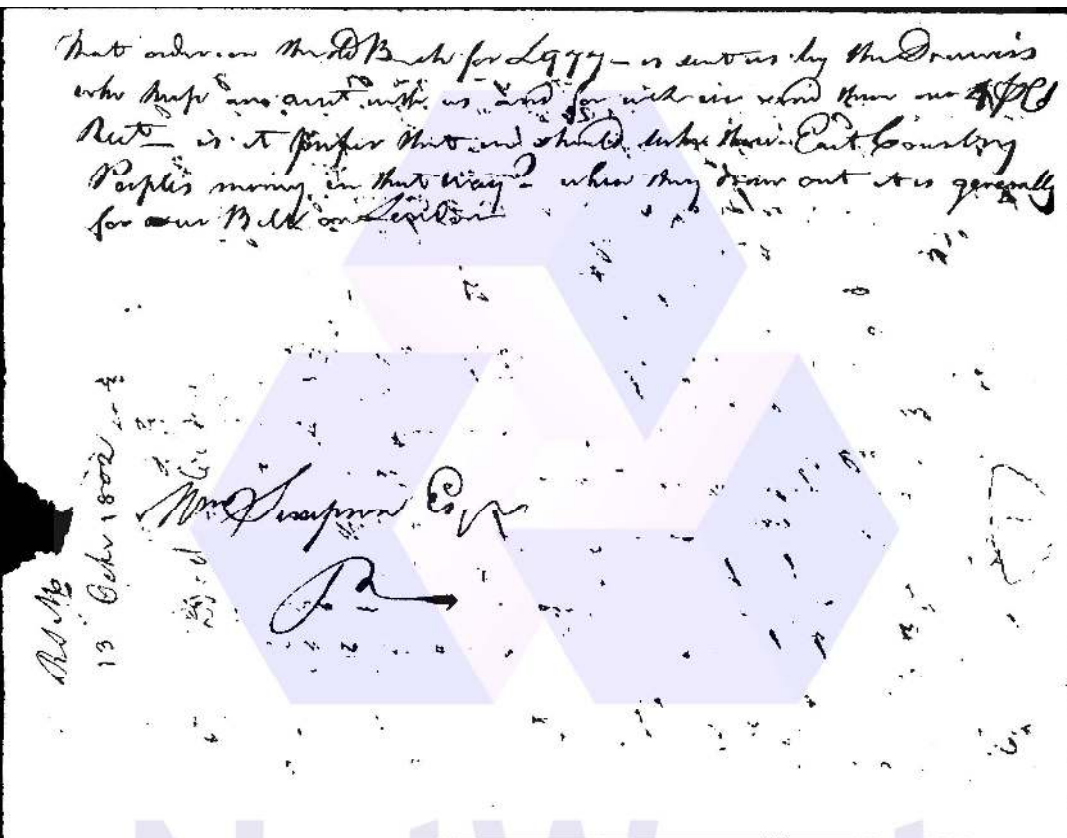 That order on the Old Bank for £977 – is sent us by the Drawers
who keep an accnt with us and for which we send them our
Rect – is it proper that we should take these East Country
Peoples money in that way? – when they draw out it is generally
for our Bill on London
Wm Simpson Esqr
13 Octr 1802
NatWest